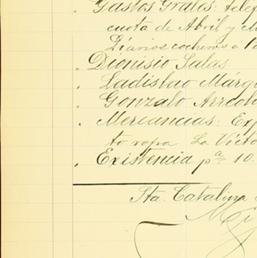 Gastos Grales: telef
cuota de Abril y M
Diarios cochero a
Dionisio Salas
Ladislao Márq
Gonzalo Arredo
Mercancías: Exp
to ropa La Victo
Existencia pª 10.
Sta. Catalina